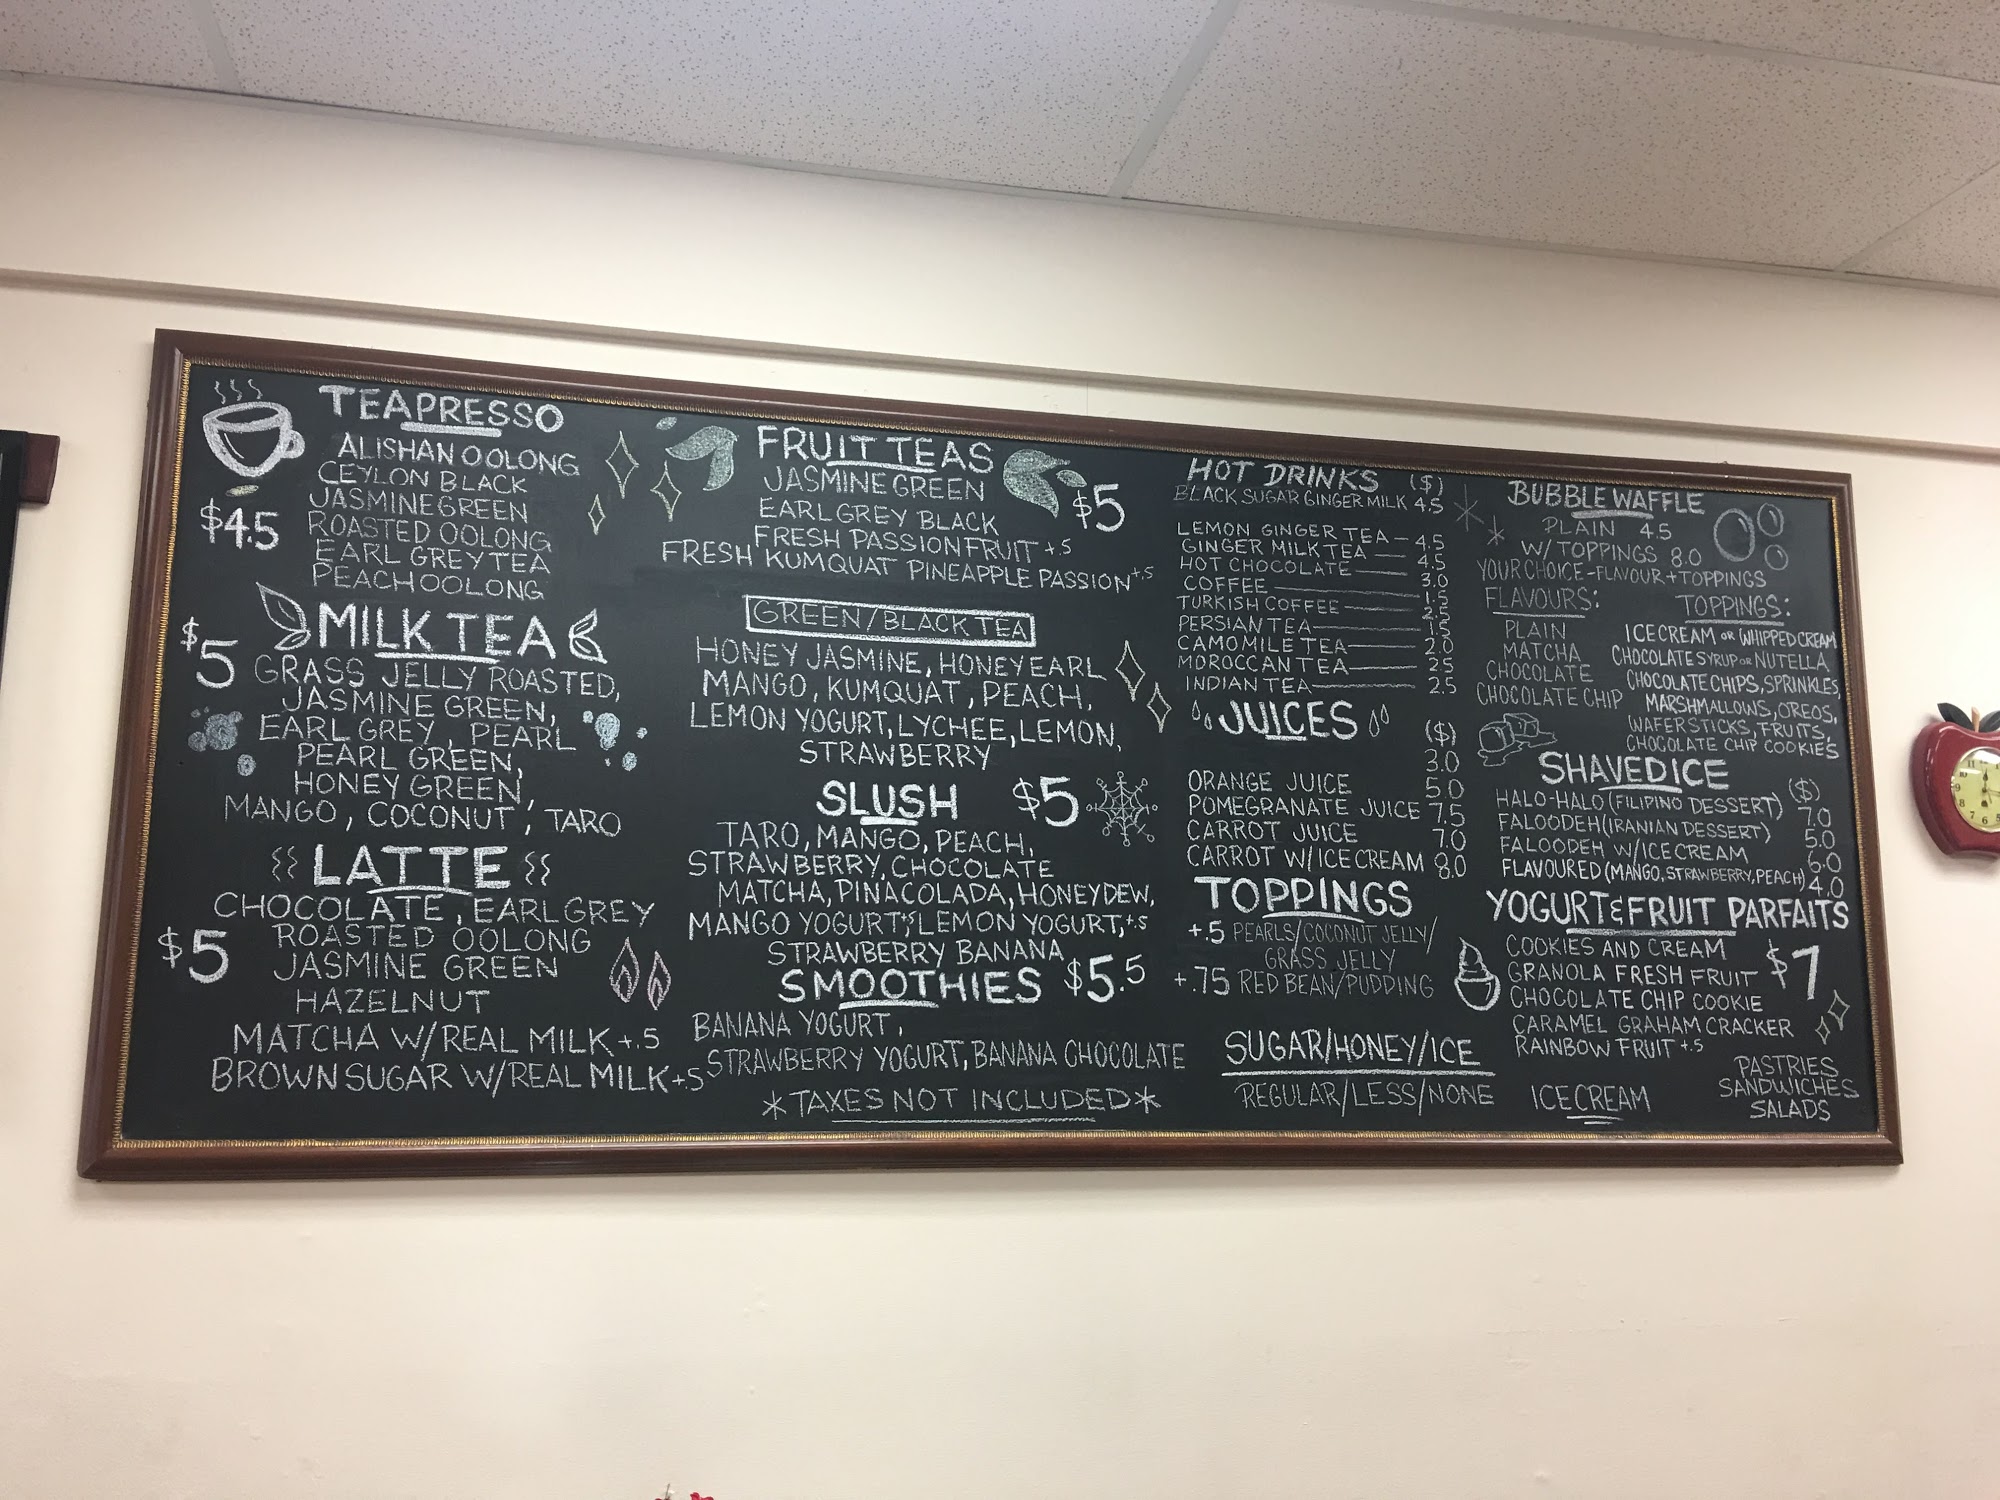 TEAPRESSO
ALISHAN OOLONG
CEYLON BLACK
JASMINE GREEN
$4.5
ROASTED OOLONG
EARL GREY TEA
PEACH OOLONG
MILK TEA
$5
GRASS JELLY ROASTED,
JASMINE GREEN,
EARL GREY, PEARL
PEARL GREEN,
HONEY GREEN,
MANGO, COCONUT, TARO
LATTE
CHOCOLATE, EARL GREY
$5
ROASTED OOLONG
JASMINE GREEN
HAZELNUT
MATCHA W/REAL MILK +.5
BROWN SUGAR W/REAL MILK +.5
FRUIT TEAS
$5
JASMINE GREEN
EARL GREY BLACK
FRESH PASSIONFRUIT +.5
FRESH KUMQUAT PINEAPPLE PASSION +.5
GREEN/BLACK TEA
HONEY JASMINE, HONEY EARL
MANGO, KUMQUAT, PEACH,
LEMON YOGURT, LYCHEE, LEMON,
STRAWBERRY
SLUSH $5
TARO, MANGO, PEACH,
STRAWBERRY, CHOCOLATE
MATCHA, PINACOLADA, HONEYDEW,
MANGO YOGURT+.5, LEMON YOGURT,+.5
STRAWBERRY BANANA
SMOOTHIES $5.5
BANANA YOGURT,
STRAWBERRY YOGURT, BANANA CHOCOLATE
*TAXES NOT INCLUDED*
HOT DRINKS ($)
BLACK SUGAR GINGER MILK 4.5
LEMON GINGER TEA 4.5
GINGER MILK TEA 4.5
HOT CHOCOLATE 3.0
COFFEE 1.5
TURKISH COFFEE 2.5
PERSIAN TEA 1.5
CAMOMILE TEA 2.0
MOROCCAN TEA 2.5
INDIAN TEA 2.5
JUICES ($)
3.0
ORANGE JUICE 5.0
POMEGRANATE JUICE 7.5
CARROT JUICE 7.0
CARROT W/ICE CREAM 8.0
TOPPINGS
+.5 PEARLS/COCONUT JELLY/
GRASS JELLY
+.75 RED BEAN/PUDDING
SUGAR/HONEY/ICE
REGULAR/LESS/NONE
BUBBLE WAFFLE
PLAIN 4.5
W/TOPPINGS 8.0
YOUR CHOICE-FLAVOUR+TOPPINGS
FLAVOURS:
PLAIN
MATCHA
CHOCOLATE
CHOCOLATE CHIP
TOPPINGS:
ICE CREAM OR WHIPPED CREAM
CHOCOLATE SYRUP OR NUTELLA,
CHOCOLATE CHIPS, SPRINKLES,
MARSHMALLOWS, OREOS,
WAFER STICKS, FRUITS,
CHOCOLATE CHIP COOKIES
SHAVED ICE
($)
HALO-HALO (FILIPINO DESSERT) 7.0
FALOODEH (IRANIAN DESSERT) 5.0
FALOODEH W/ICE CREAM 6.0
FLAVOURED (MANGO, STRAWBERRY, PEACH) 4.0
YOGURT & FRUIT PARFAITS
$7
COOKIES AND CREAM
GRANOLA FRESH FRUIT
CHOCOLATE CHIP COOKIE
CARAMEL GRAHAM CRACKER
RAINBOW FRUIT +.5
ICE CREAM
PASTRIES
SANDWICHES
SALADS